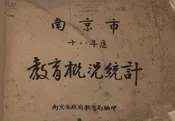 南京市
十八年度
教育概况統計
南京市政府教育局編印